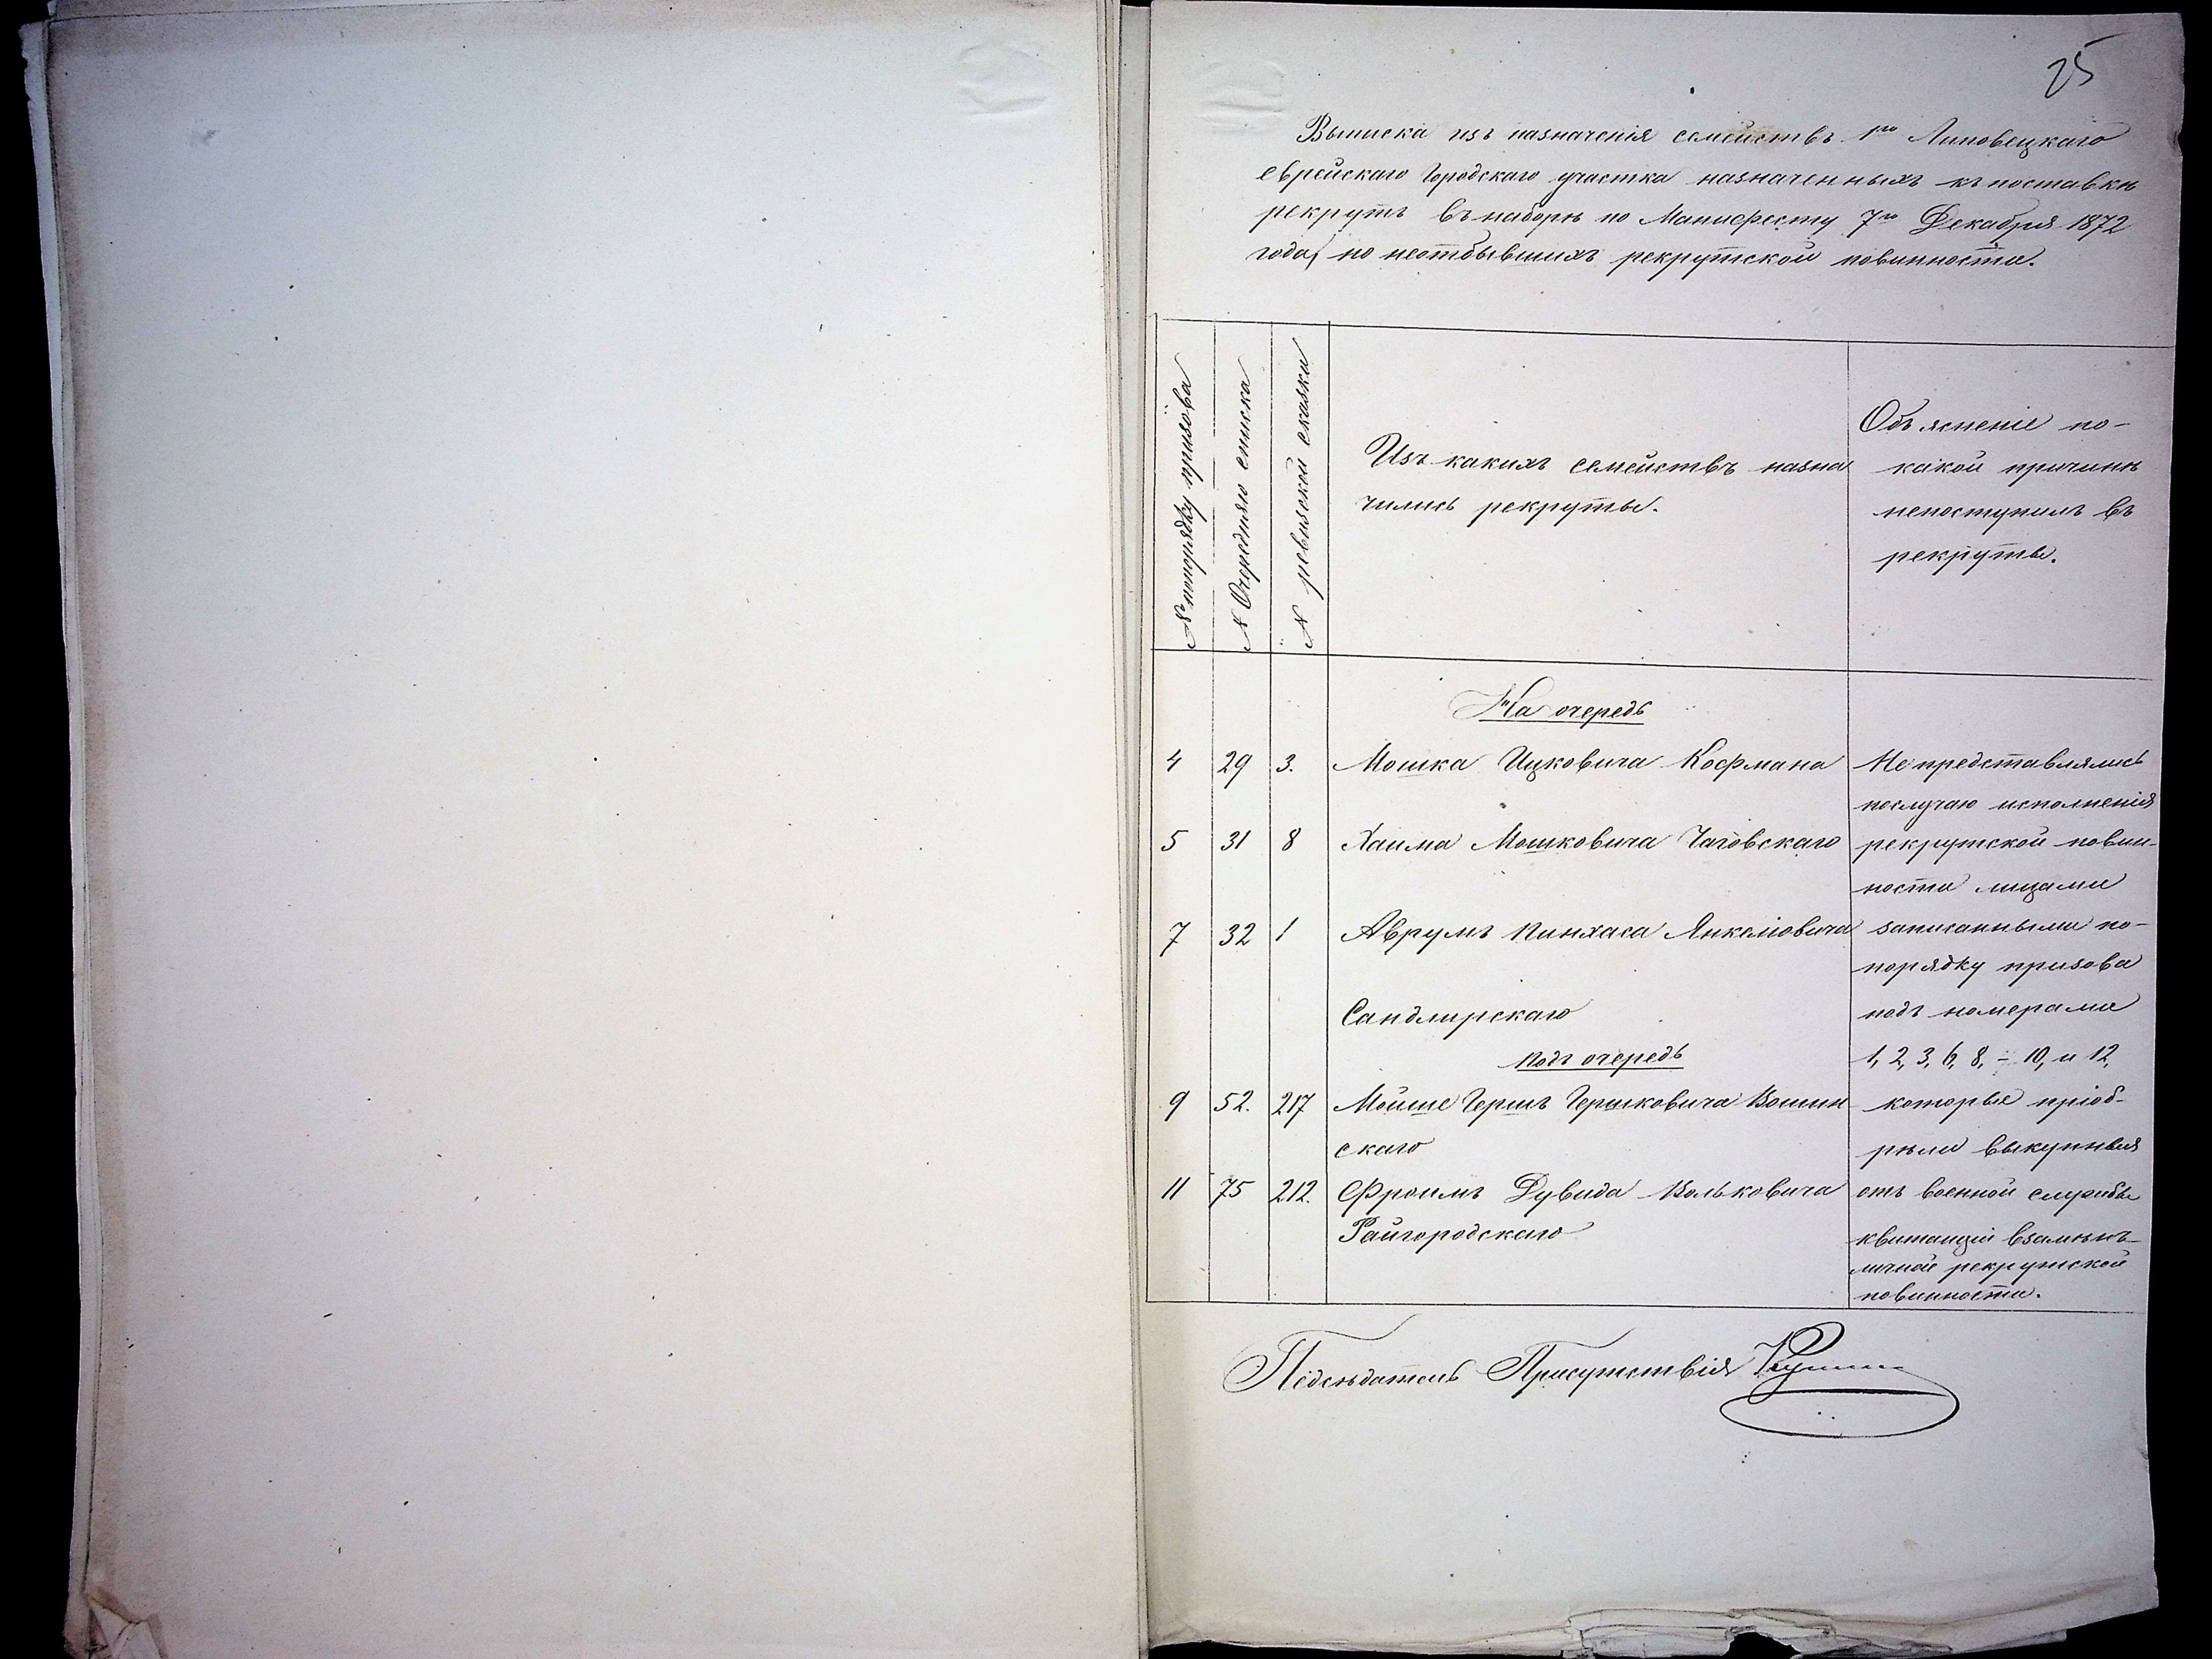 25
Выписка изъ назначенія семействъ 1го Липовецкаго
еврейскаго Городскаго участка назначенныхъ къ поставкѣ
рекрутъ въ наборѣ по Манифесту 7го Декабря 1872
года, но неотбывшихъ рекрутской повинности.
№ попорядку призова
№ Очереднаго списка
№ ревизской сказки
Изъ какихъ семействъ назна
чились рекруты.
Объясненіе по-
какой причинѣ
непоступилъ въ
рекруты.
На очередь
4 29 3. Мошка Ицковича Кофмана
5 31 8 Хаима Мошковича Чаговскаго
7 32 1 Аврумъ Пинхаса Янкеліовича
Сандлирскаго
Подъ очередь
9 52. 217 Мойше Гершъ Гершковича Вошин
скаго
11 75 212. Фроимъ Дувида Вольковича
Райгородскаго
Не представлялись
послучаю исполненія
рекрутской повин-
ности лицами
записанными по-
порядку призова
подъ номерами
1, 2, 3, 6, 8, ÷ 10, и 12,
которые пріоб-
рѣли выкупныя
отъ военной службы
квитанціи взамѣнъ
личной рекрутской
повинности.
Педсѣдатель Присутствія